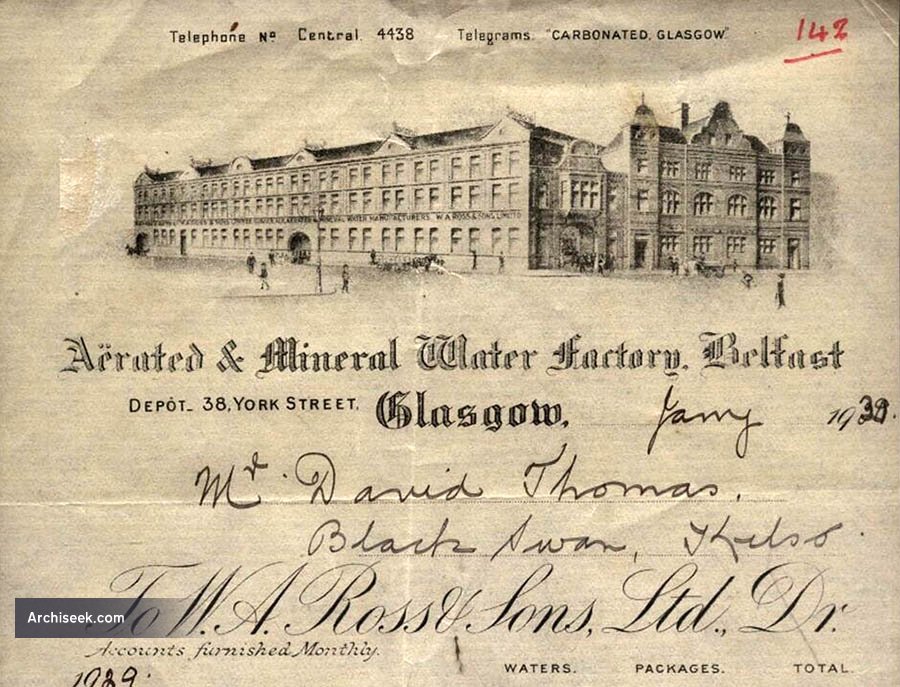 Telephone Nº Central. 4438 Telegrams. "CARBONATED, GLASGOW"
142
MINERAL WATER MANUFACTURERS. W.A. ROSS & SONS LIMITED
Aërated & Mineral Water Factory. Belfast
DEPÔT_ 38, YORK STREET. Glasgow, Jany 1939.
Mr. David Thomas.
Black Swan, Kelso.
To W. A. Ross & Sons, Ltd., Dr.
Archiseek.com
Accounts furnished Monthly.
1939. WATERS. PACKAGES. TOTAL.